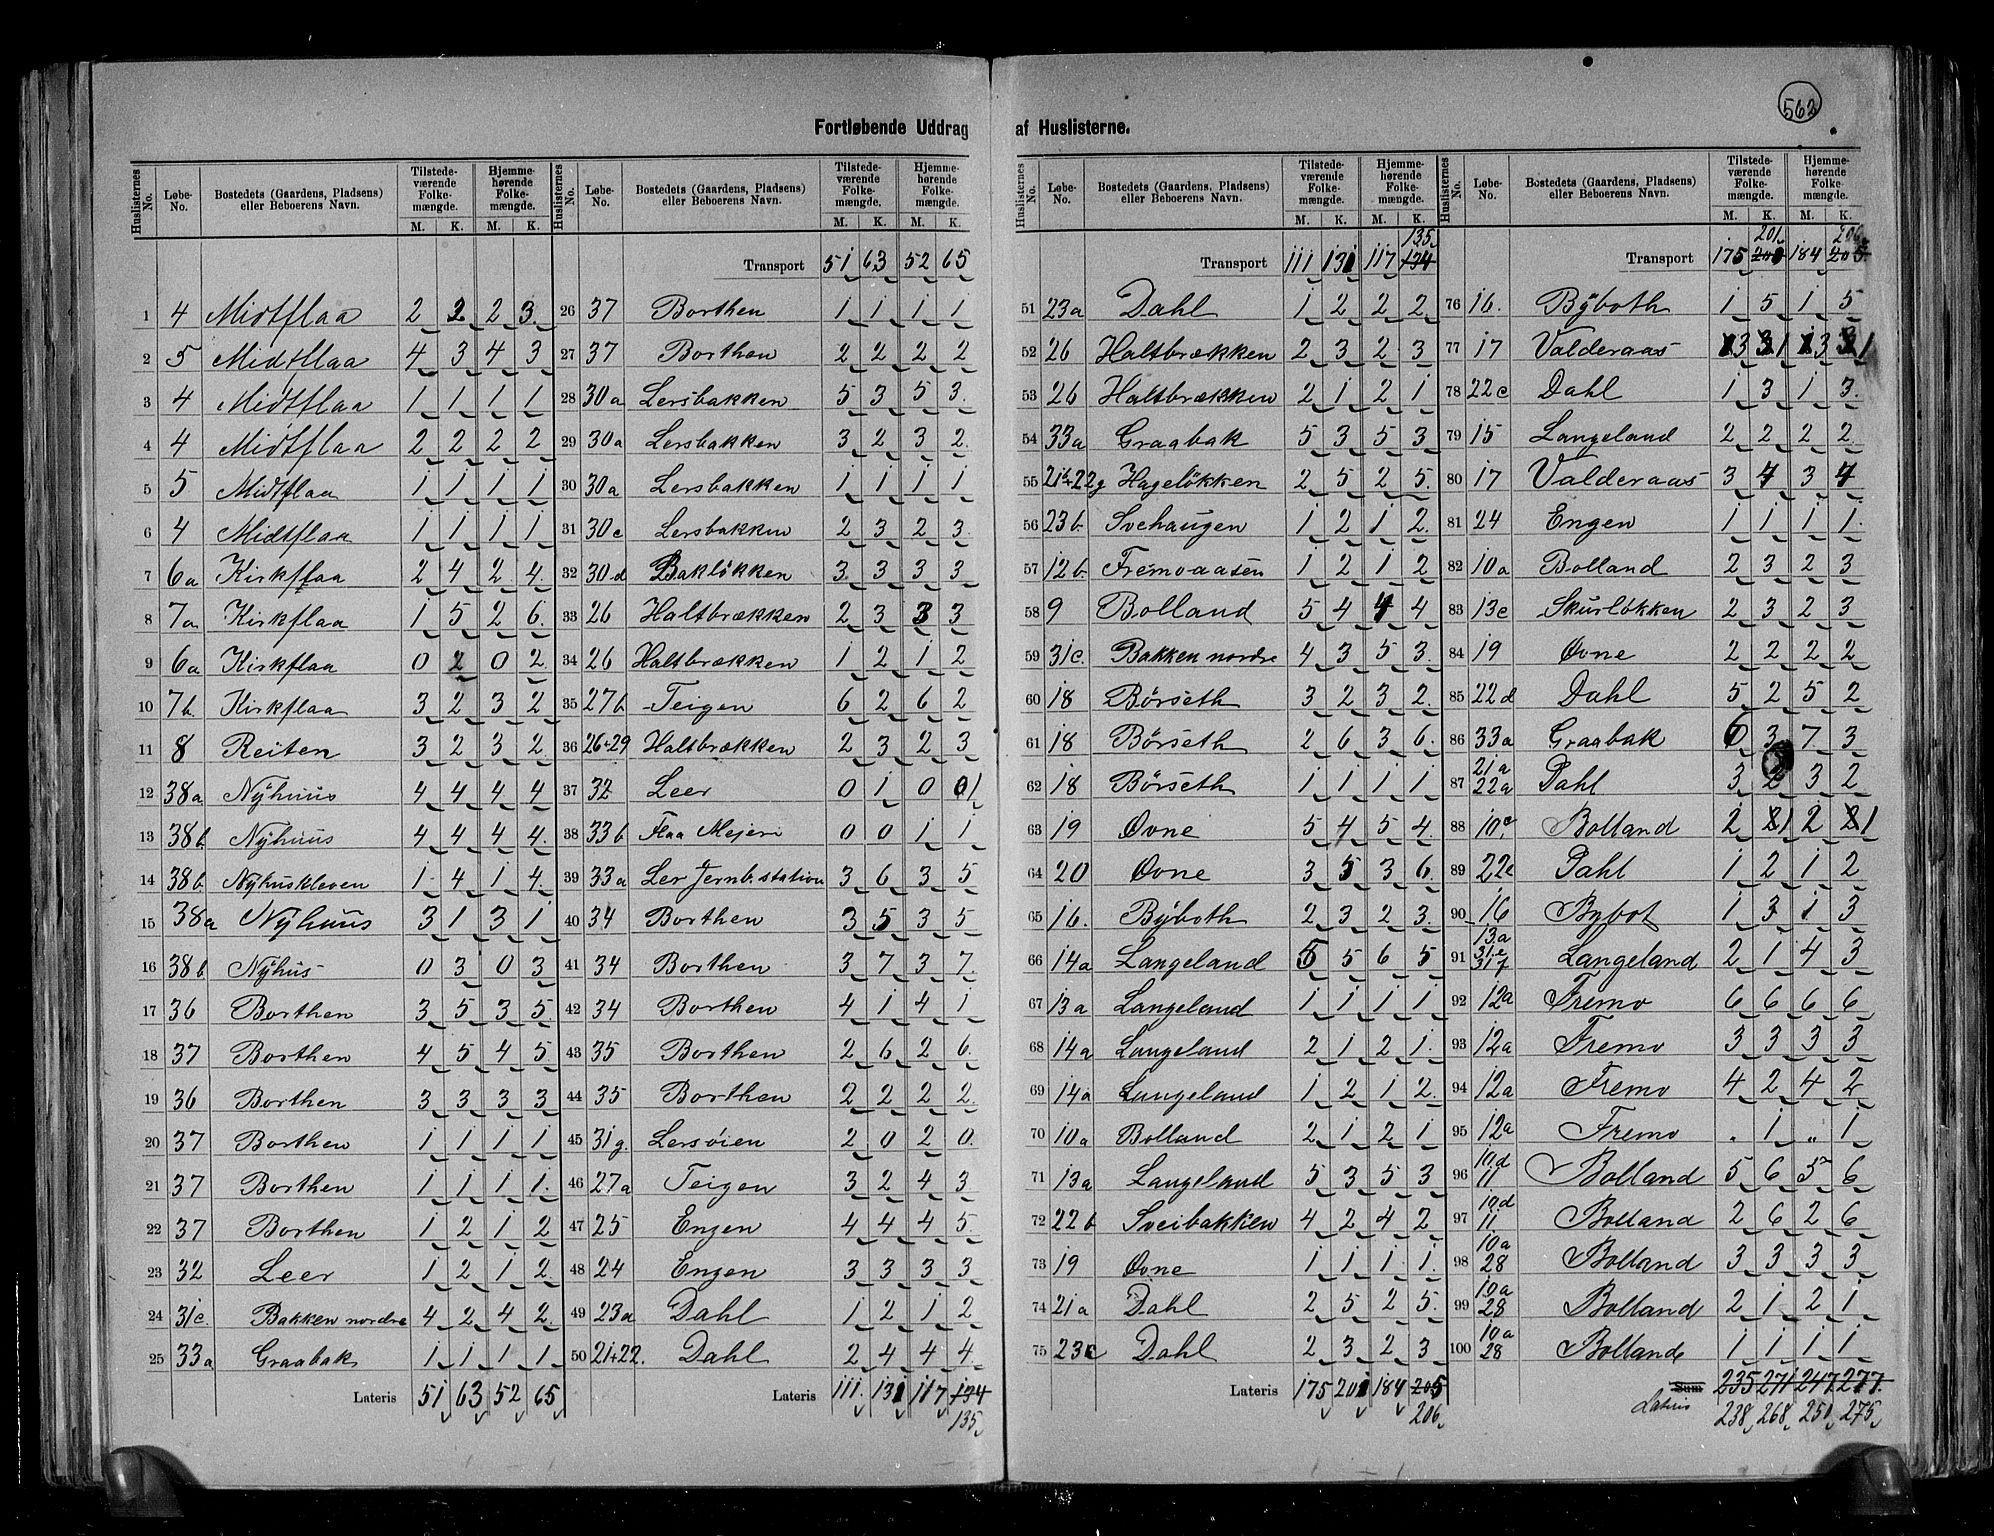 562
Fortløbende Uddrag af Huslisterne.
Huslisternes No. Løbe-No. Bostedets (Gaardens, Pladsens) eller Beboerens Navn. Tilstedeværende Folkemængde. M. K. Hjemmehørende Folkemængde. M. K.
1 4 Midtflaa 2 2 2 3
2 5 Midtflaa 4 3 4 3
3 4 Midtflaa 1 1 1 1
4 4 Midtflaa 2 2 2 2
5 5 Midtflaa 1 1 1 1
6 4 Midtflaa 1 1 1 1
7 6a Kirkflaa 2 4 2 4
8 7a Kirkflaa 1 5 2 6
9 6a Kirkflaa 0 2 0 2
10 7b. Kirkflaa 3 2 3 2
11 8 Reiten 3 2 3 2
12 38a Nÿhuus 4 4 4 4
13 38b. Nÿhuus 4 4 4 4
14 38b. Nÿhuskleven 1 4 1 4
15 38a Nÿhuus 3 1 3 1
16 38b. Nÿhus 0 3 0 3
17 36 Borthen 3 5 3 5
18 37 Borthen 4 5 4 5
19 36 Borthen 3 3 3 3
20 37 Borthen 1 1 1 1
21 37 Borthen 1 1 1 1
22 37 Borthen 1 2 1 2
23 32 Leer 1 2 1 2
24 31c. Bakken nordre 4 2 4 2
25 33a Graabak 1 1 1 1
Lateris 51 63 52 65
Huslisternes No. Løbe-No. Bostedets (Gaardens, Pladsens) eller Beboerens Navn. Tilstedeværende Folkemængde. M. K. Hjemmehørende Folkemængde. M. K.
Transport 51 63 52 65
26 37 Borthen 1 1 1 1
27 37 Borthen 2 2 2 2
28 30a Lersbakken 5 3 5 3
29 30a Lersbakken 3 2 3 2
30 30a Lersbakken 1 1 1 1
31 30c Lersbakken 2 3 2 3
32 30d Bakløkken 3 3 3 3
33 26 Haltbrækken 2 3 3 3
34 26 Haltbrækken 1 2 1 2
35 27b Teigen 6 2 6 2
36 26+29 Haltbrækken 2 3 2 3
37 32 Leer 0 1 0 1
38 33b Flaa Mejeri 0 0 1 1
39 33a Ler Jernb. station 3 6 3 5
40 34 Borthen 3 5 3 5
41 34 Borthen 3 7 3 7
42 34 Borthen 4 1 4 1
43 35 Borthen 2 6 2 6
44 35 Borthen 2 2 2 2
45 31g. Lersøien 2 0 2 0
46 27a Teigen 3 2 4 3
47 25 Engen 4 4 4 5
48 24 Engen 3 3 3 3
49 23a Dahl 1 2 1 2
50 21+22. Dahl 2 4 4 4
Lateris 111. 131 117 134
135
Huslisternes No. Løbe-No. Bostedets (Gaardens, Pladsens) eller Beboerens Navn. Tilstedeværende Folkemængde. M. K. Hjemmehørende Folkemængde. M. K.
135
Transport 111 131 117 134
51 23a Dahl 1 2 2 2
52 26 Haltbrækken 2 3 2 3
53 26 Haltbrækken 2 1 2 1
54 33a Graabak 5 3 5 3
55 21b+22g Hageløkken 2 5 2 5
56 23b Svehaugen 1 2 1 2
57 12b. Fremoaasen 1 2 1 2
58 9 Bolland 5 4 4 4
59 31c. Bakken nordre 4 3 5 3
60 18 Børseth 3 2 3 2
61 18 Børseth 2 6 3 6
62 18 Børseth 1 1 1 1
63 19 Øvne 5 4 5 4
64 20 Øvne 3 5 3 6
65 16. Bÿboth 2 3 2 3
66 14a Langeland 5 5 6 5
67 13a Langeland 1 1 1 1
68 14a Langeland 2 1 2 1
69 14a Langeland 1 2 1 2
70 10a Bolland 2 1 2 1
71 13a Langeland 5 3 5 3
72 22b Sveibakken 4 2 4 2
73 19 Øvne 1 1 1 1
74 21a Dahl 2 5 2 5
75 23c Dahl 2 3 2 3
Lateris 175 201 184 205
206
Huslisternes No. Løbe-No. Bostedets (Gaardens, Pladsens) eller Beboerens Navn. Tilstedeværende Folkemængde. M. K. Hjemmehørende Folkemængde. M. K.
201 206
Transport 175 200 184 205
76 16. Bÿboth 1 5 1 5
77 17 Valderaas 3 1 3 1
78 22c Dahl 1 3 1 3
79 15 Langeland 2 2 2 2
80 17 Valderaas 3 4 3 4
81 24 Engen 1 1 1 1
82 10a Bolland 2 3 2 3
83 13c Skurløkken 2 3 2 3
84 19 Øvne 2 2 2 2
85 22d Dahl 5 2 5 2
86 33a Graabak 6 3 7 3
87 21a 22a Dahl 3 2 3 2
88 10c Bolland 2 1 2 1
89 22c Dahl 1 2 1 2
90 16 Bybot 1 3 1 3
91 13a 31e 31f Langeland 2 1 4 3
92 12a Fremo 6 6 6 6
93 12a Fremo 3 3 3 3
94 12a Fremo 4 2 4 2
95 12a Fremo „ 1 „ 1
96 10d 11 Bolland 5 6 5 6
97 10d 11. Bolland 2 6 2 6
98 10a 28 Bolland 3 3 3 3
99 10a 28 Bolland 2 1 2 1
100 10a 28 Bolland 1 1 1 1
Sum 235 271 247 277.
Lateris 238 268 250 275